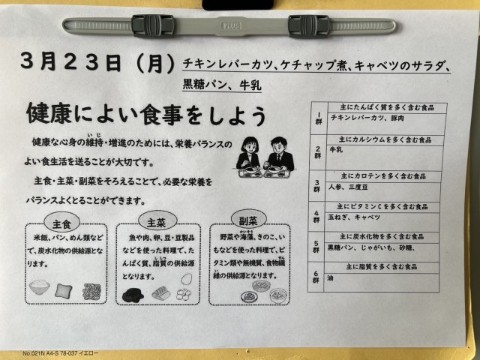 3月23日(月)チキンレバーカツ、ケチャップ煮、キャベツのサラダ、
黒糖パン、牛乳
健康によい食事をしよう
健康な心身の維持・増進のためには、栄養バランスの
いじ
よい食生活を送ることが大切です。
主食・主菜・副菜をそろえることで、必要な栄養を
バランスよくとることができます。
主食
米飯、パン、めん類など
で、炭水化物の供給源とな
ります。
主菜
魚や肉、卵、豆・豆製品
などを使った料理で、た
んぱく質、脂質の供給源
となります。
副菜
野菜や海藻、きのこ、い
もなどを使った料理で、ビ
タミン類や無機質、食物繊
維の供給源となります。
1群
主にたんぱく質を多く含む食品
チキンレバーカツ、豚肉
2群
主にカルシウムを多く含む食品
牛乳
3群
主にカロテンを多く含む食品
人参、三度豆
4群
主にビタミンCを多く含む食品
玉ねぎ、キャベツ
5群
主に炭水化物を多く含む食品
黒糖パン、じゃがいも、砂糖、
6群
主に脂質を多く含む食品
油
No.021N A4-S 78-037 イエロー